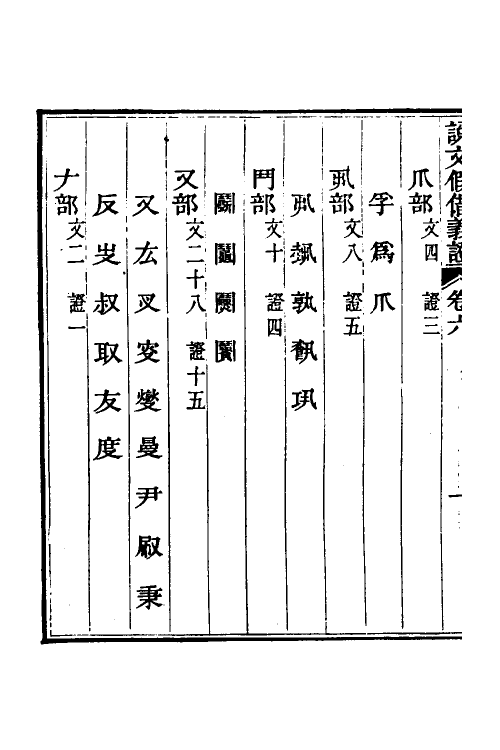 說文假借義證 卷六 一
爪部 文四 證三
孚 爲 爪
丮部 文八 證五
丮 孰 巩
鬥部 文十 證四
又部 文二十八 證十五
又 厷 叉 叜 燮 曼 尹 㕞 秉
反 叔 取 友 度
𠂇部 文二 證一